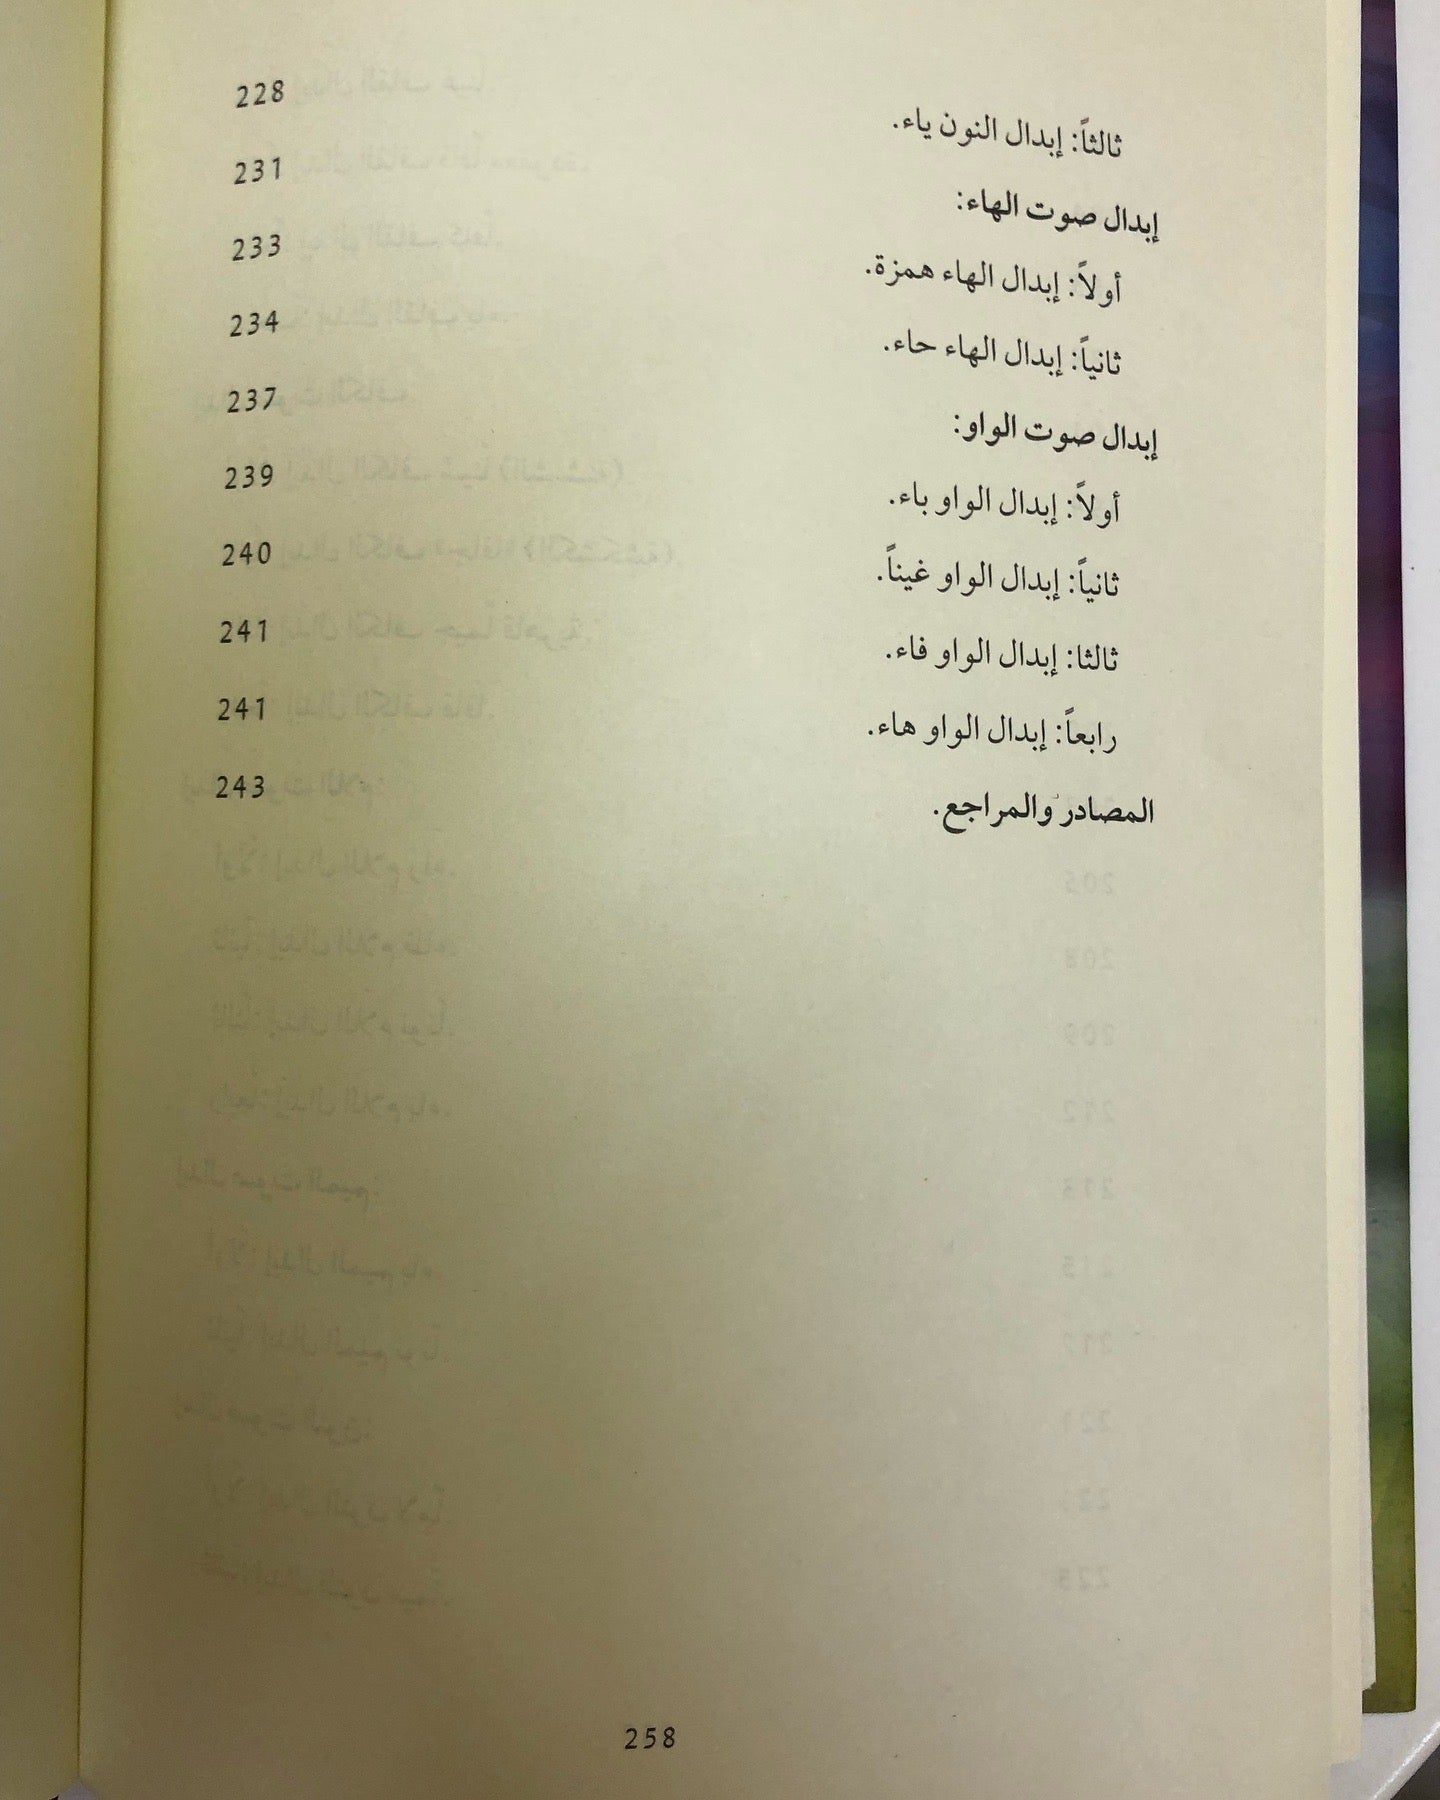 ثالثاً: إبدال النون ياء. 228
إبدال صوت الهاء: 231
أولاً: إبدال الهاء همزة. 233
ثانياً: إبدال الهاء حاء. 234
إبدال صوت الواو: 237
أولاً: إبدال الواو باء. 239
ثانياً: إبدال الواو غيناً. 240
ثالثا: إبدال الواو فاء. 241
رابعاً: إبدال الواو هاء. 241
المصادر والمراجع. 243
258